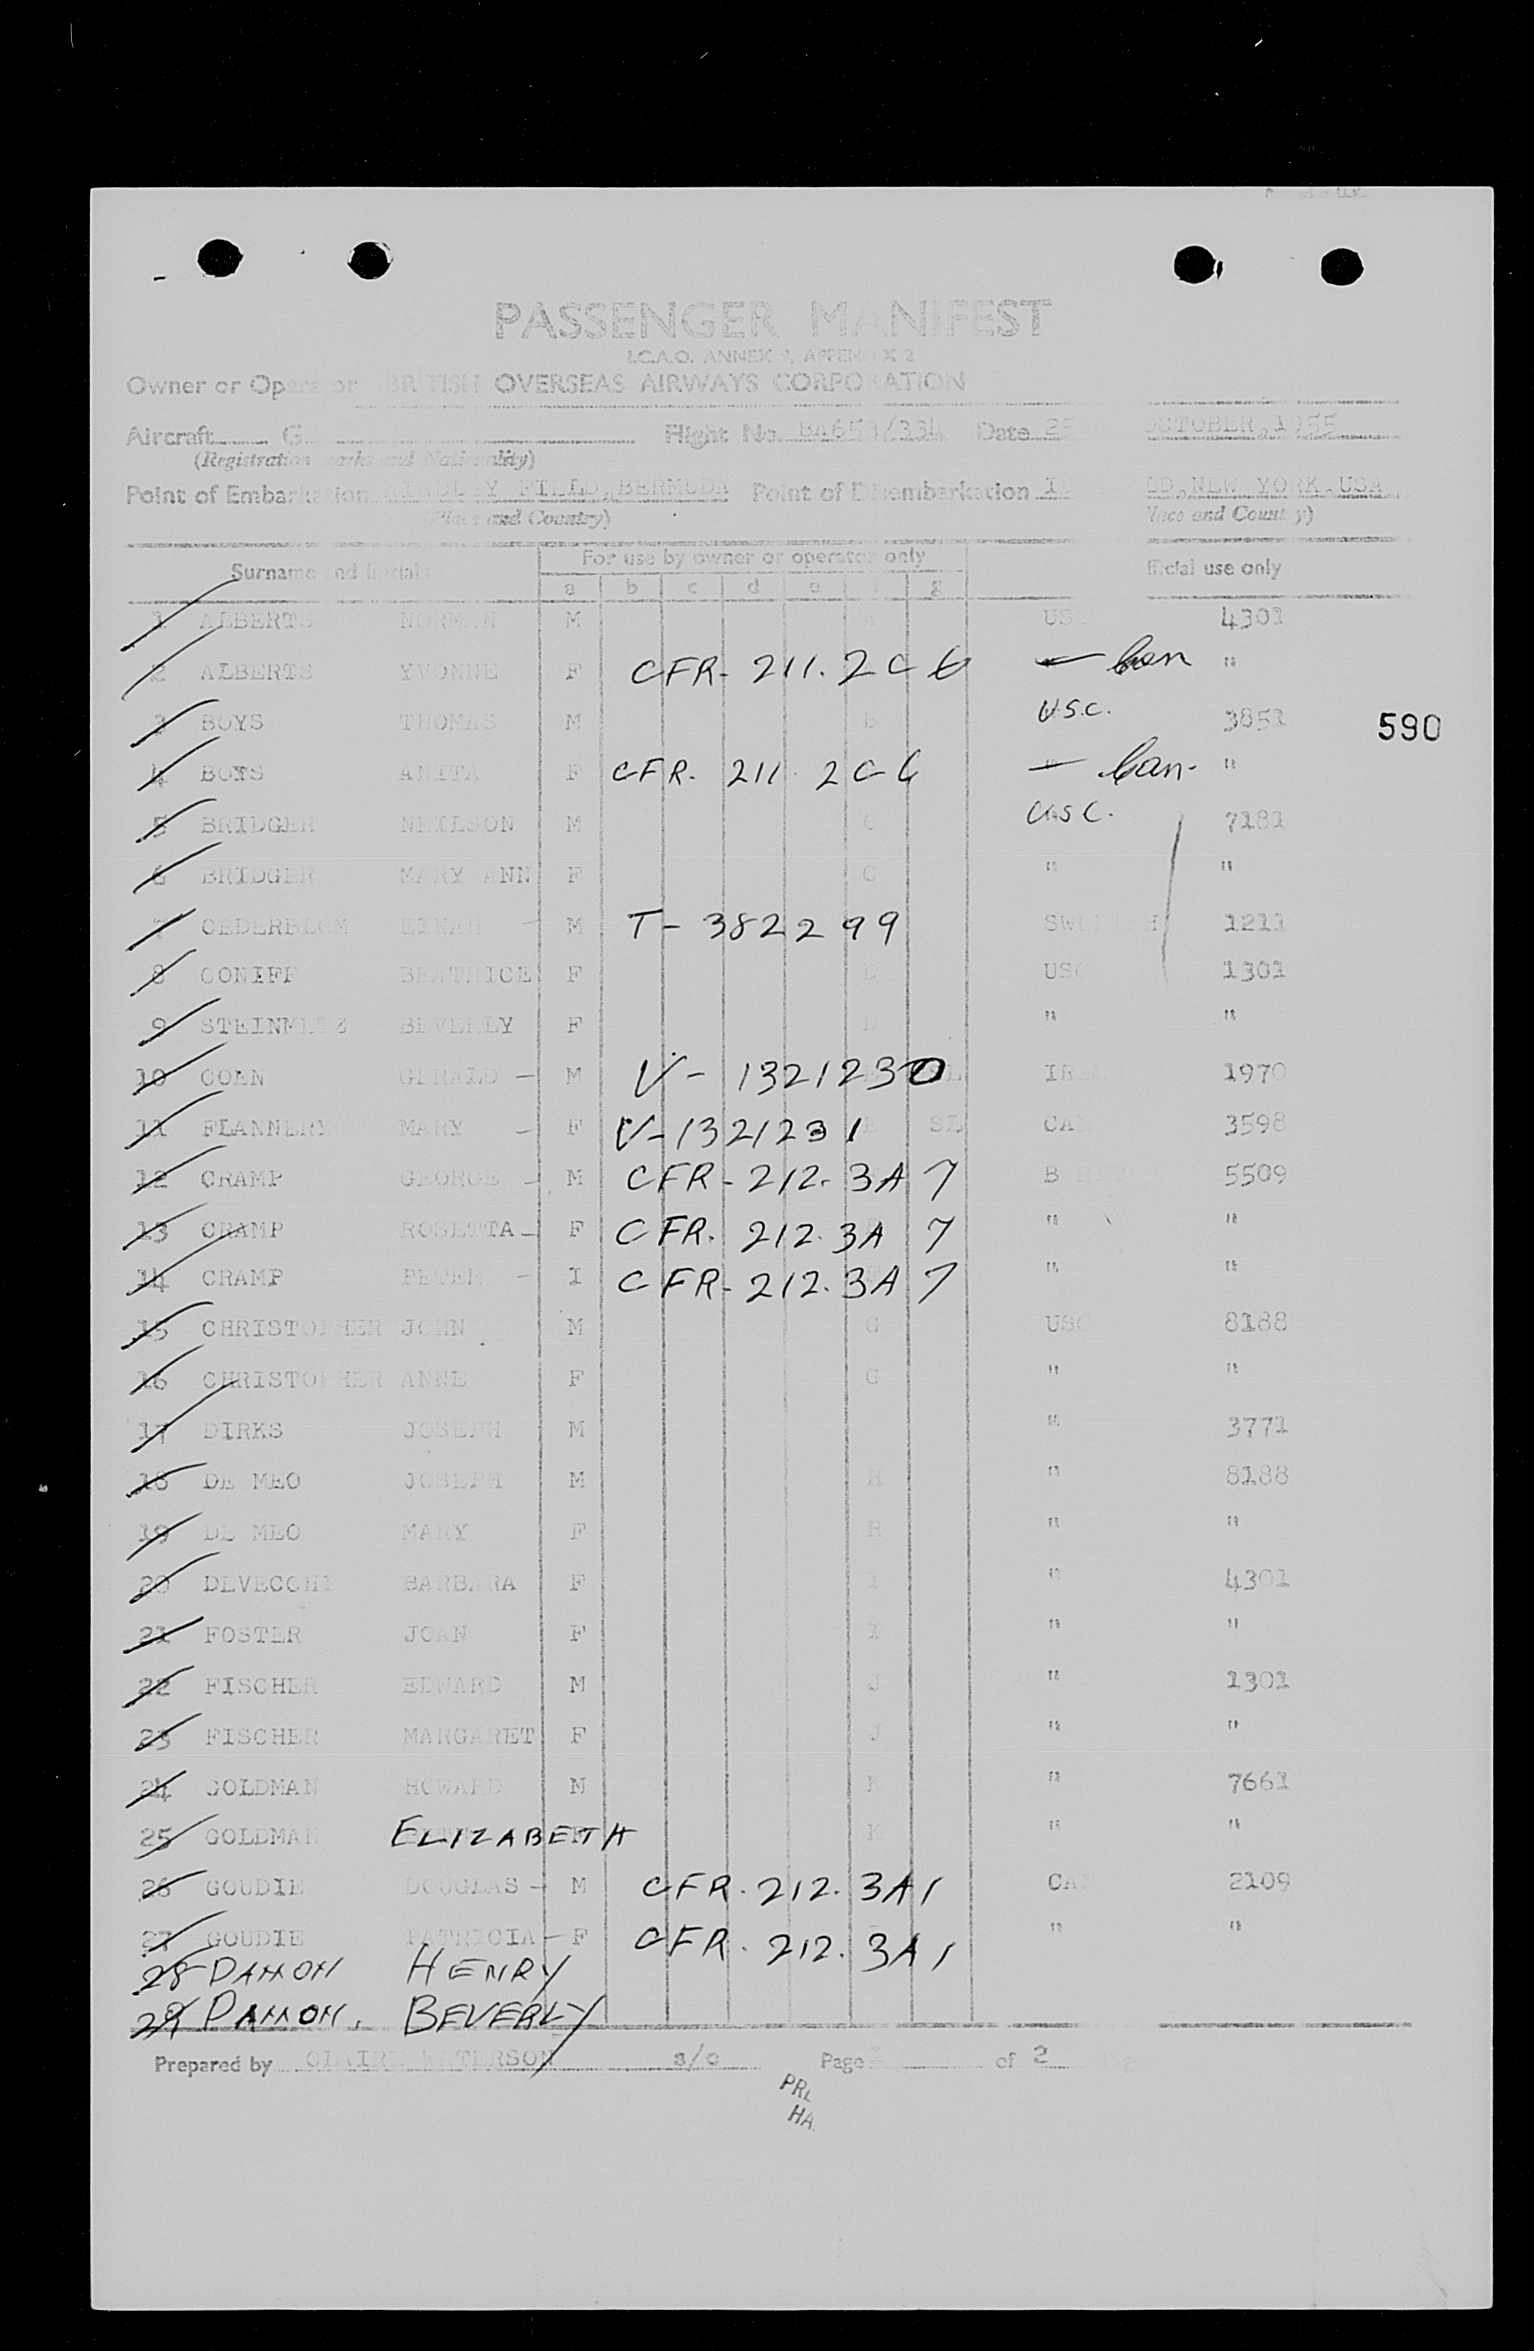 PASSENGER MANIFEST
I.C.A.O. ANNEX 9, APPENDIX 2
Owner or Operator BRITISH OVERSEAS AIRWAYS CORPORATION
Aircraft G Flight No. Date OCTOBER, 1955
(Registration marks and Nationality)
Point of Embarkation KINDLEY FIELD, BERMUDA Point of Disembarkation NEW YORK, USA
(Place and Country) (Place and Country)
For use by owner or operator only
Surname and Initials official use only
a b c d e f g
1 ALBERTS NORMAN M US 4301
2 ALBERTS YVONNE F CFR- 211.2C6 Can "
3 BOYS THOMAS M B U.S.C. 3851 590
4 BOYS ANITA F CFR. 211. 2C6 Can- "
5 BRIDGER NEILSON M C USC. 7181
6 BRIDGER MARY ANN F C " "
7 CEDERBLOM EINAR - M T- 382299 SWEDISH 1211
8 CONIFF BEATRICE F D USC 1301
9 STEINMETZ BEVERLY F D " "
10 COEN GERALD - M V- 1321230 1970
11 FLANNERY MARY - F V-1321231 SL CA 3598
12 CRAMP GEORGE - M CFR-212.3A7 B 5509
13 CRAMP ROSETTA - F CFR. 212.3A7 " "
14 CRAMP PETER - I CFR-212.3A7 " "
15 CHRISTOPHER JOHN M G USC 8188
16 CHRISTOPHER ANNE F G " "
17 DIRKS JOSEPH M " 3771
18 DE MEO JOSEPH M H " 8188
19 DE MEO MARY F H " "
20 DEVECCHI BARBARA F I " 4301
21 FOSTER JOAN F I " "
22 FISCHER EDWARD M J " 1301
23 FISCHER MARGARET F J " "
24 GOLDMAN HOWARD M K " 7661
25 GOLDMAN ELIZABETH K " "
26 GOUDIE DOUGLAS - M CFR.212.3A1 CA 2109
27 GOUDIE PATRICIA - F CFR.212.3A1 " "
28 HENRY
29 BEVERLY
Prepared by CLAIRE WATERSON s/c Page of 2
PRE
HA